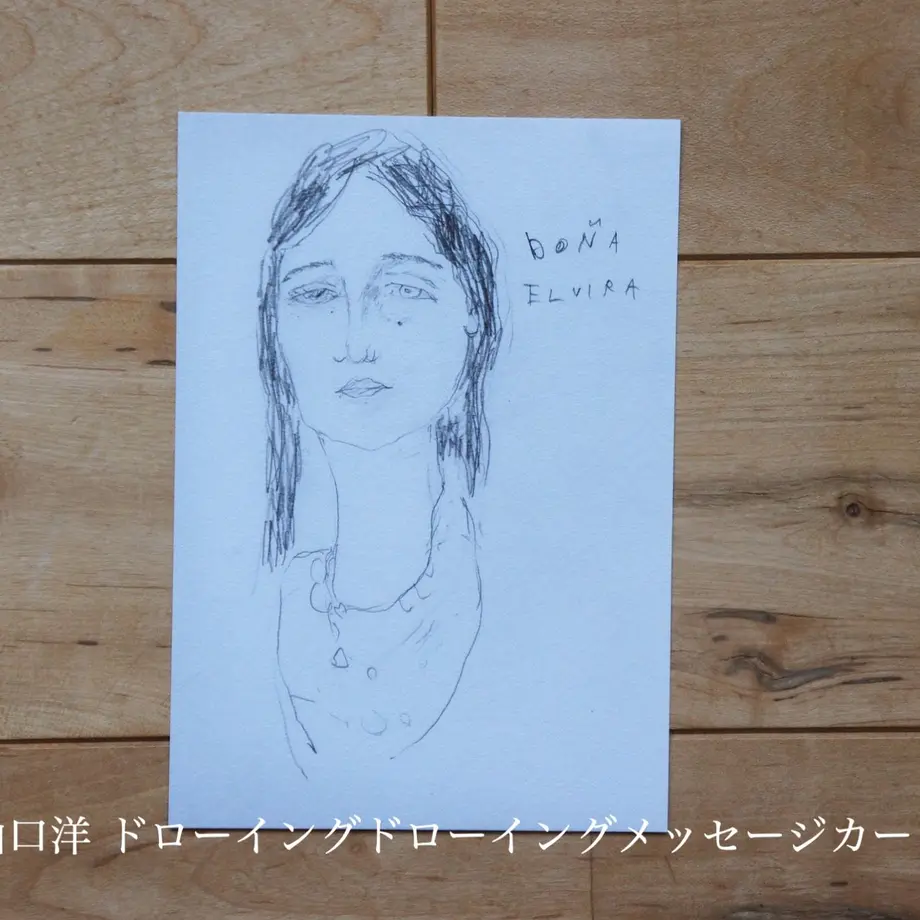 DOÑA
ELVIRA
山口洋 ドローイングドローイングメッセージカー